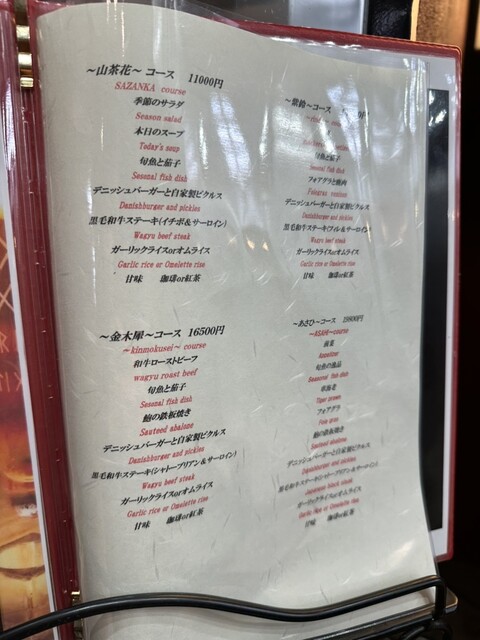 ～山茶花～ コース 11000円
SAZANKA course
季節のサラダ
Season salad
本日のスープ
Today's soup
旬魚と茄子
Sesonal fish dish
デニッシュバーガーと自家製ピクルス
Danishburger and pickles
黒毛和牛ステーキ(イチボ&サーロイン)
Wagyu beef steak
ガーリックライスorオムライス
Garlic rice or Omelette rise
甘味 珈琲or紅茶
～紫鈴～コース
旬魚と茄子
Sesonal fish dish
フォアグラと鹿肉
Foiegras venison
デニッシュバーガーと自家製ピクルス
Danishburger and pickles
黒毛和牛ステーキ(フィレ&サーロイン)
Wagyu beef steak
ガーリックライスorオムライス
Garlic rice or Omelette rise
甘味 珈琲or紅茶
～金木犀～コース 16500円
～kinmokusei～ course
和牛ローストビーフ
wagyu roast beef
旬魚と茄子
Sesonal fish dish
鮑の鉄板焼き
Sauteed abalone
デニッシュバーガーと自家製ピクルス
Danishburger and pickles
黒毛和牛ステーキ(シャトーブリアン&サーロイン)
Wagyu beef steak
ガーリックライスorオムライス
Garlic rice or Omelette rise
甘味 珈琲or紅茶
～あさひ～コース
～ASAHI～course
前菜
Appetizer
旬魚の逸品
Seasonal fish dish
車海老
Tiger prawn
フォアグラ
Foie gras
鮑の鉄板焼き
Sauteed abalone
デニッシュバーガーと自家製ピクルス
Danishburger and pickles
黒毛和牛ステーキ(シャトーブリアン&サーロイン)
Japanese black steak
ガーリックライスorオムライス
Garlic Rice or Omelette rise
甘味 珈琲or紅茶